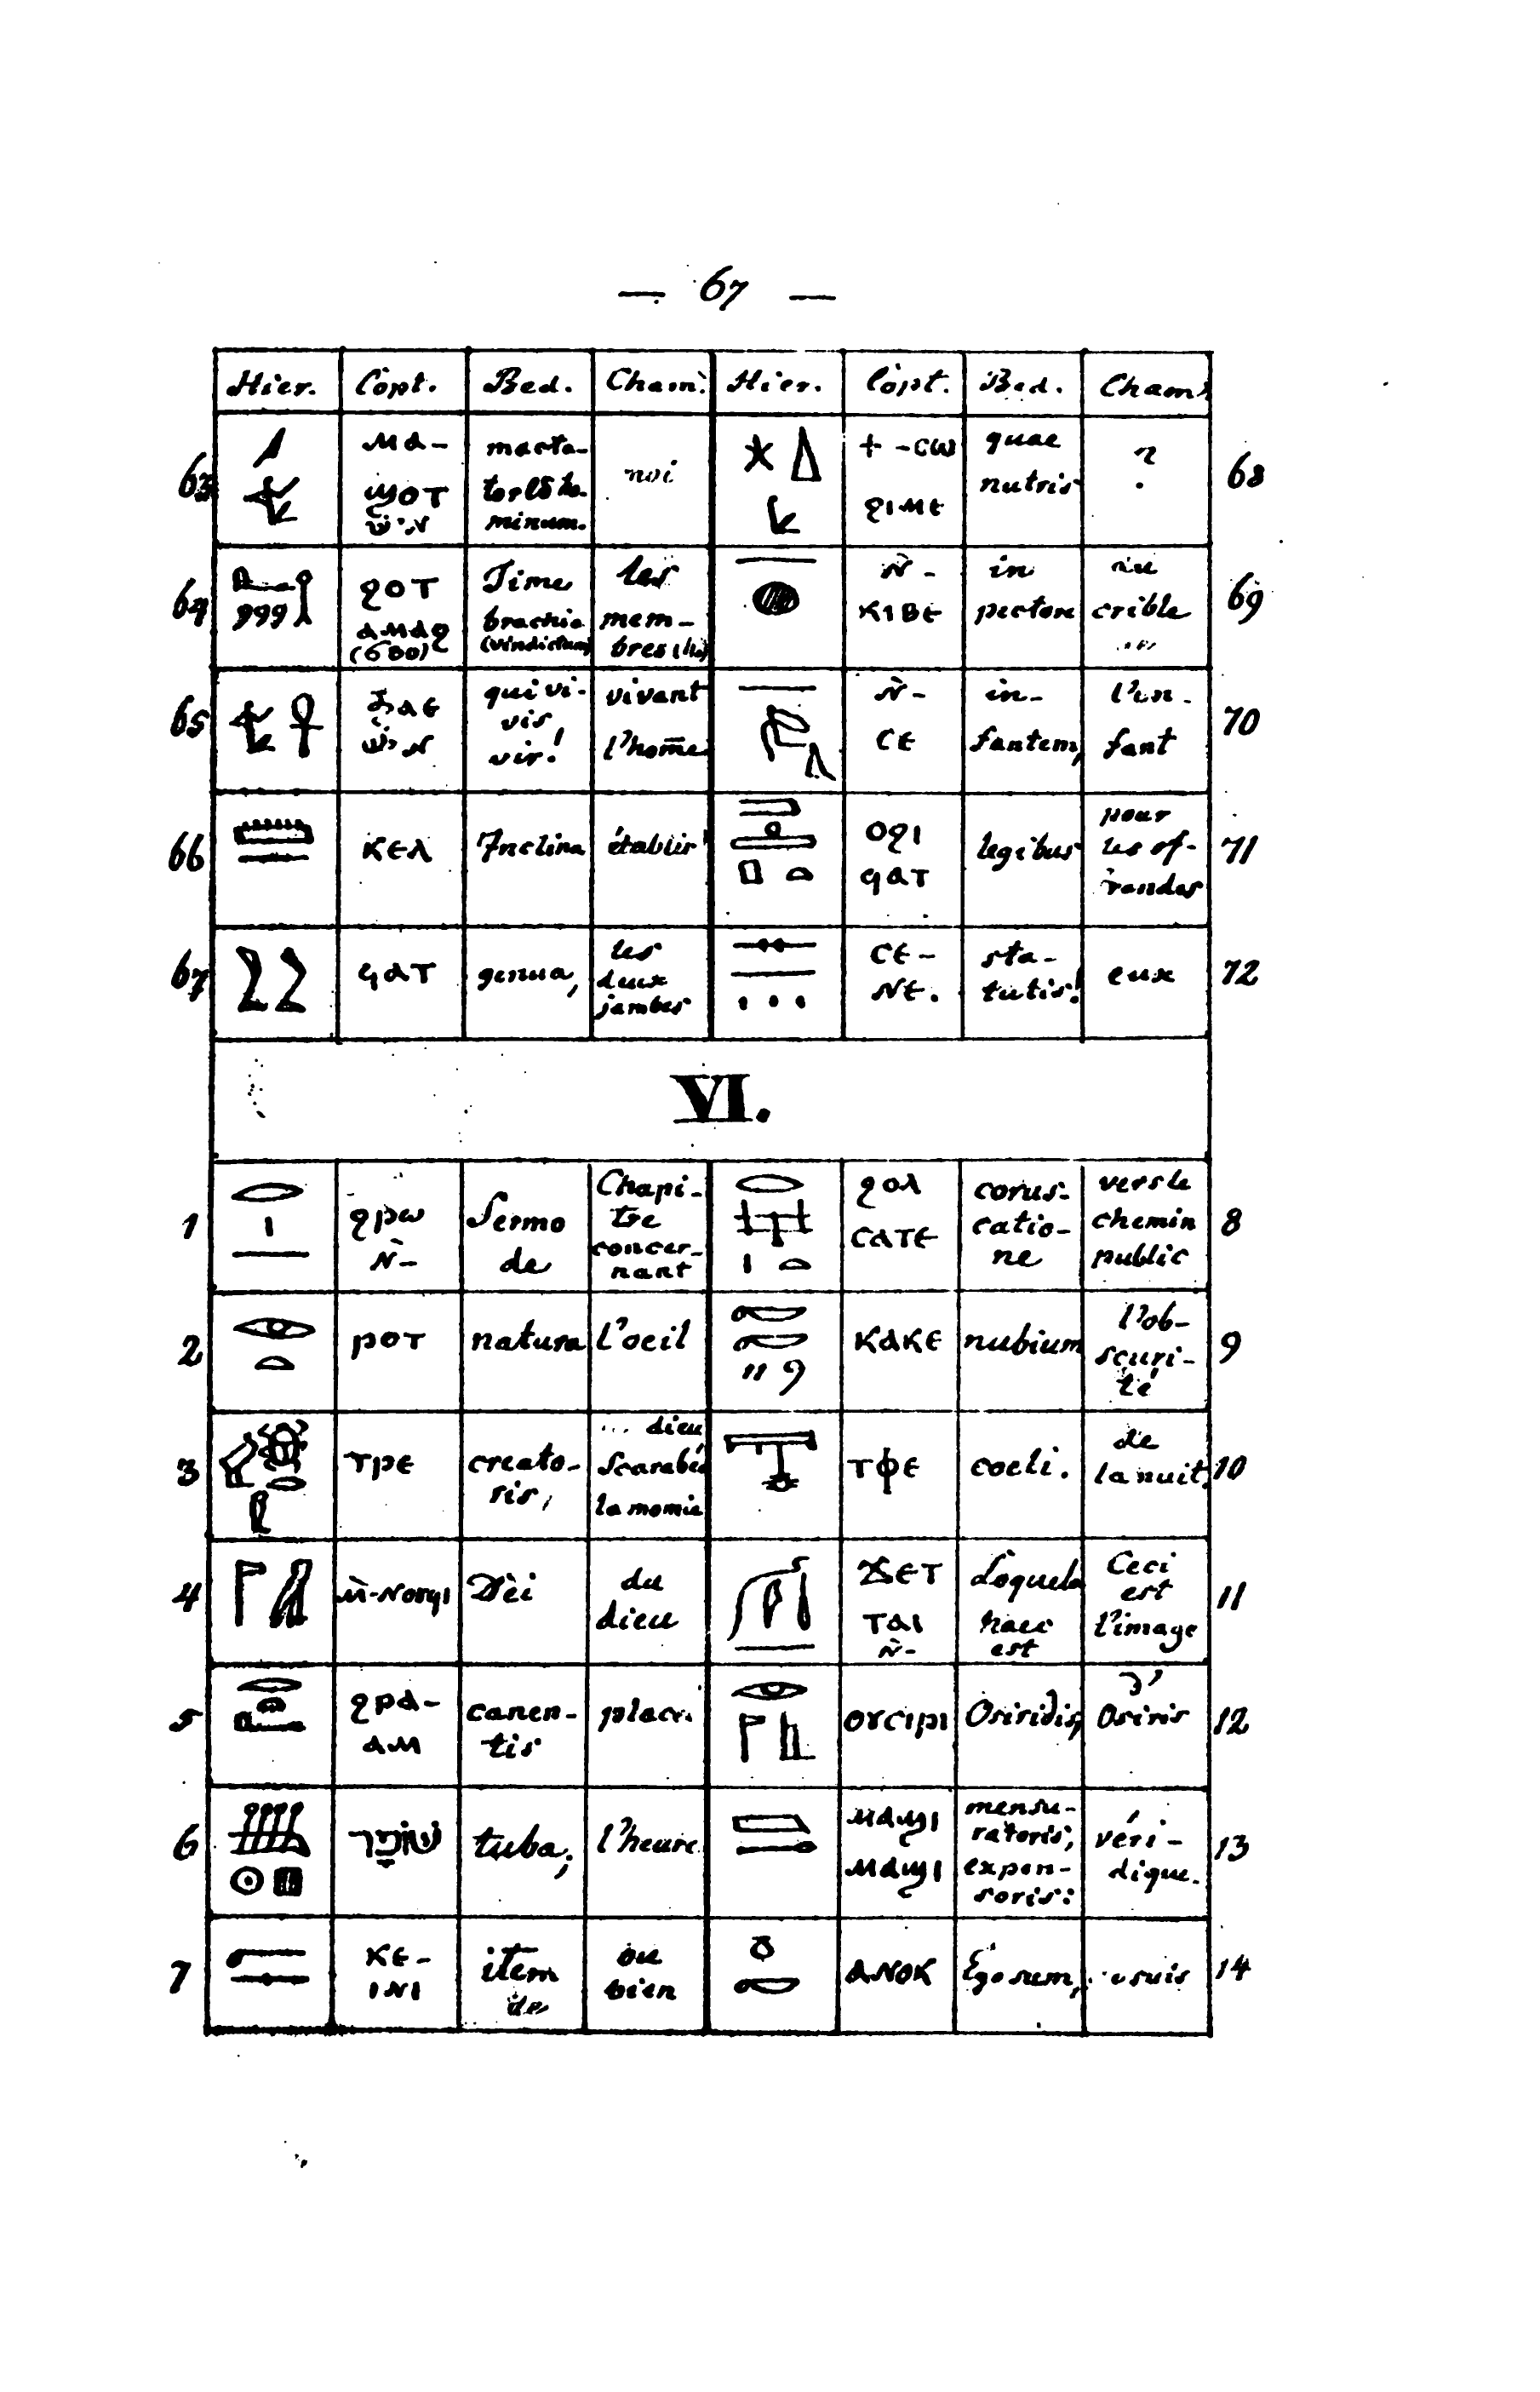 — 67 —
Hier. Copt. Bed. Cham. Hier. Copt. Bed. Cham.
63 ⲙⲁ- ϣⲟⲧ אִישׁ mactatores hominum. moi
ϯ-ⲥⲱ ϩⲓⲙⲉ quae nutris ? 68
64 ϩⲟⲧ ⲁⲙⲁϩ (680) Time brachia (vindictam) les membres
ⲛ̀- ⲕⲓⲃⲉ in pectore au crible ... 69
65 ϫⲁⲉ אִישׁ qui vivis vir! vivant l'home
ⲛ̀- ⲥⲉ in- fantem, l'enfant 70
66 ⲕⲉⲗ Inclina établir
ⲟϩⲓ ϥⲁⲧ legibus pour les offrandes 71
67 ϥⲁⲧ genua, les deux jambes
ⲥⲉ- ⲛⲉ. statutis! eux 72
VI.
1 ϩⲣⲱ ⲛ̀- Sermo de Chapitre concernant
ϩⲟⲗ ⲥⲁⲧⲉ coruscatione vers le chemin public 8
2 ⲣⲟⲧ natura l'oeil
ⲕⲁⲕⲉ nubium l'obscurité 9
3 ⲧⲣⲉ creatoris, ... dieu Scarabée la momie
ⲧⲫⲉ coeli. de la nuit 10
4 ⲙ̀-ⲛⲟⲩϥⲓ Dei du dieu
ϫⲉⲧ ⲧⲁⲓ ⲛ̀- Loquela haec est Ceci est l'image 11
5 ϩⲣⲁ- ⲁⲙ canentis place.
ⲟⲩⲥⲓⲣⲓ Osiridis, d' Osiris 12
6 שׁוֹפָר tuba; l'heure
ⲙⲁϣⲓ ⲙⲁϣⲓ mensuratoris, expensoris: véridique. 13
7 ⲕⲉ- ⲓⲛⲓ item de ou bien
ⲁⲛⲟⲕ Ego sum, suis 14